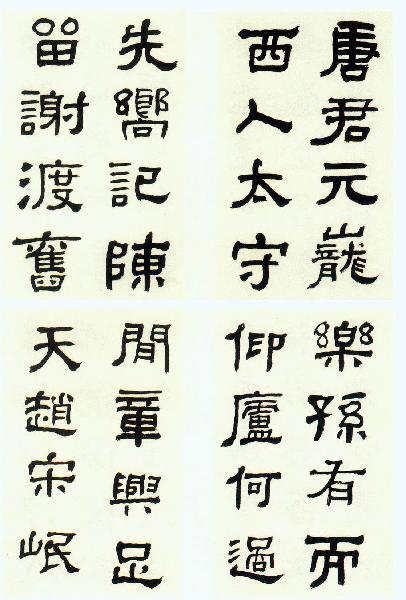 唐君元巃
西人太守
先嚮記陳
留謝渡奮
樂孫有而
仰廬何過
閒章興足
天趙宋岷